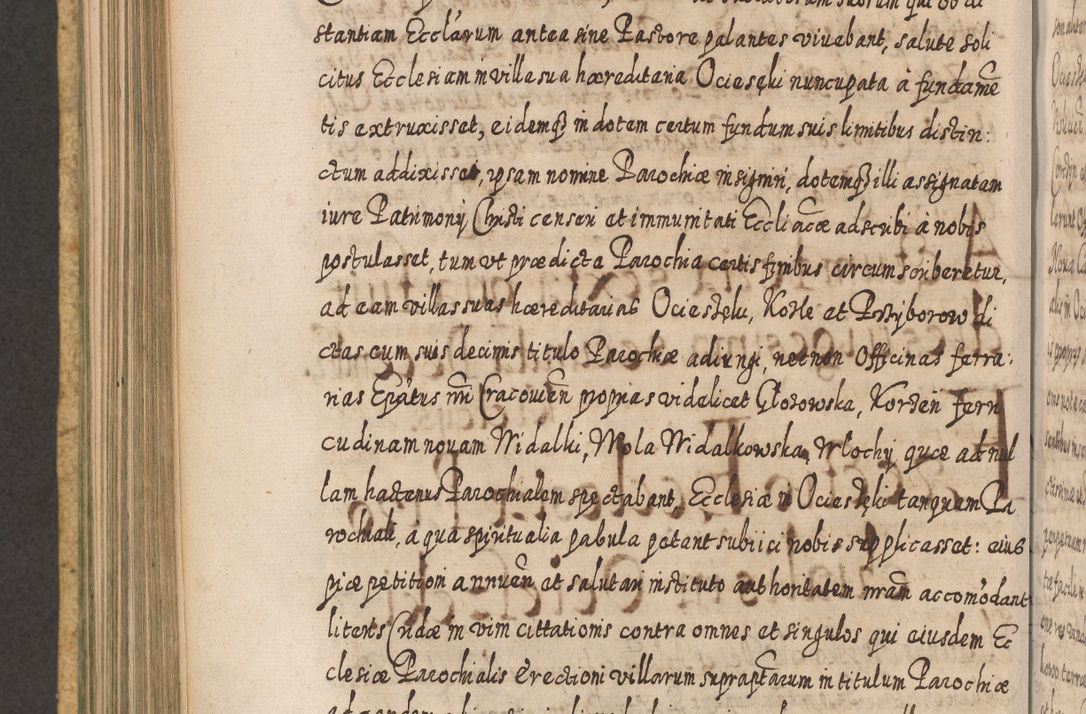 stantiam Ecclarum antea sine Pastore palantes viuebant, salute soli
citus Ecclesiam in villa sua hæreditaria Ociesęki nuncupata à fundamē
tis extruxisset, eidemq in dotem certum fundum suis limitibus distin:
ctum addixisset, ipsam nomine Parochiæ insigniri, dotemq illi assignatam
iure Patrimonÿ Christi censeri et immunitati Eccliacæ adscribi à nobis
postulasset, tum vt prædicta Parochia certis finibus circumscriberetur,
ad eam villas suas hæreditarias Ociesęku, Kotle et Przÿborow di
ctas cum suis decimis titulo Parochiæ adiungi, necnon Officinas ferra:
rias Epatus nri Cracouien proprias videlicet Głozowska, Korzeń ferri
cudinam nouam Widalki, Wola Widalkowska, Włochÿ quæ ad nul
lam hactenus Parochialem spectabant, Ecclesiæ in Ociesęki tanquam Pa
rochiali, a qua spiritualia pabula petant subiici nobis supplicasset: eius
piæ petitioni annuen et salutari instituto authoritatem nram accomodant
literis Cridæ in vim cittationis contra omnes et singulos qui eiusdem Ec
clesiæ Parochialis Erectioni villarum supraptarum in titulum Parochiæ